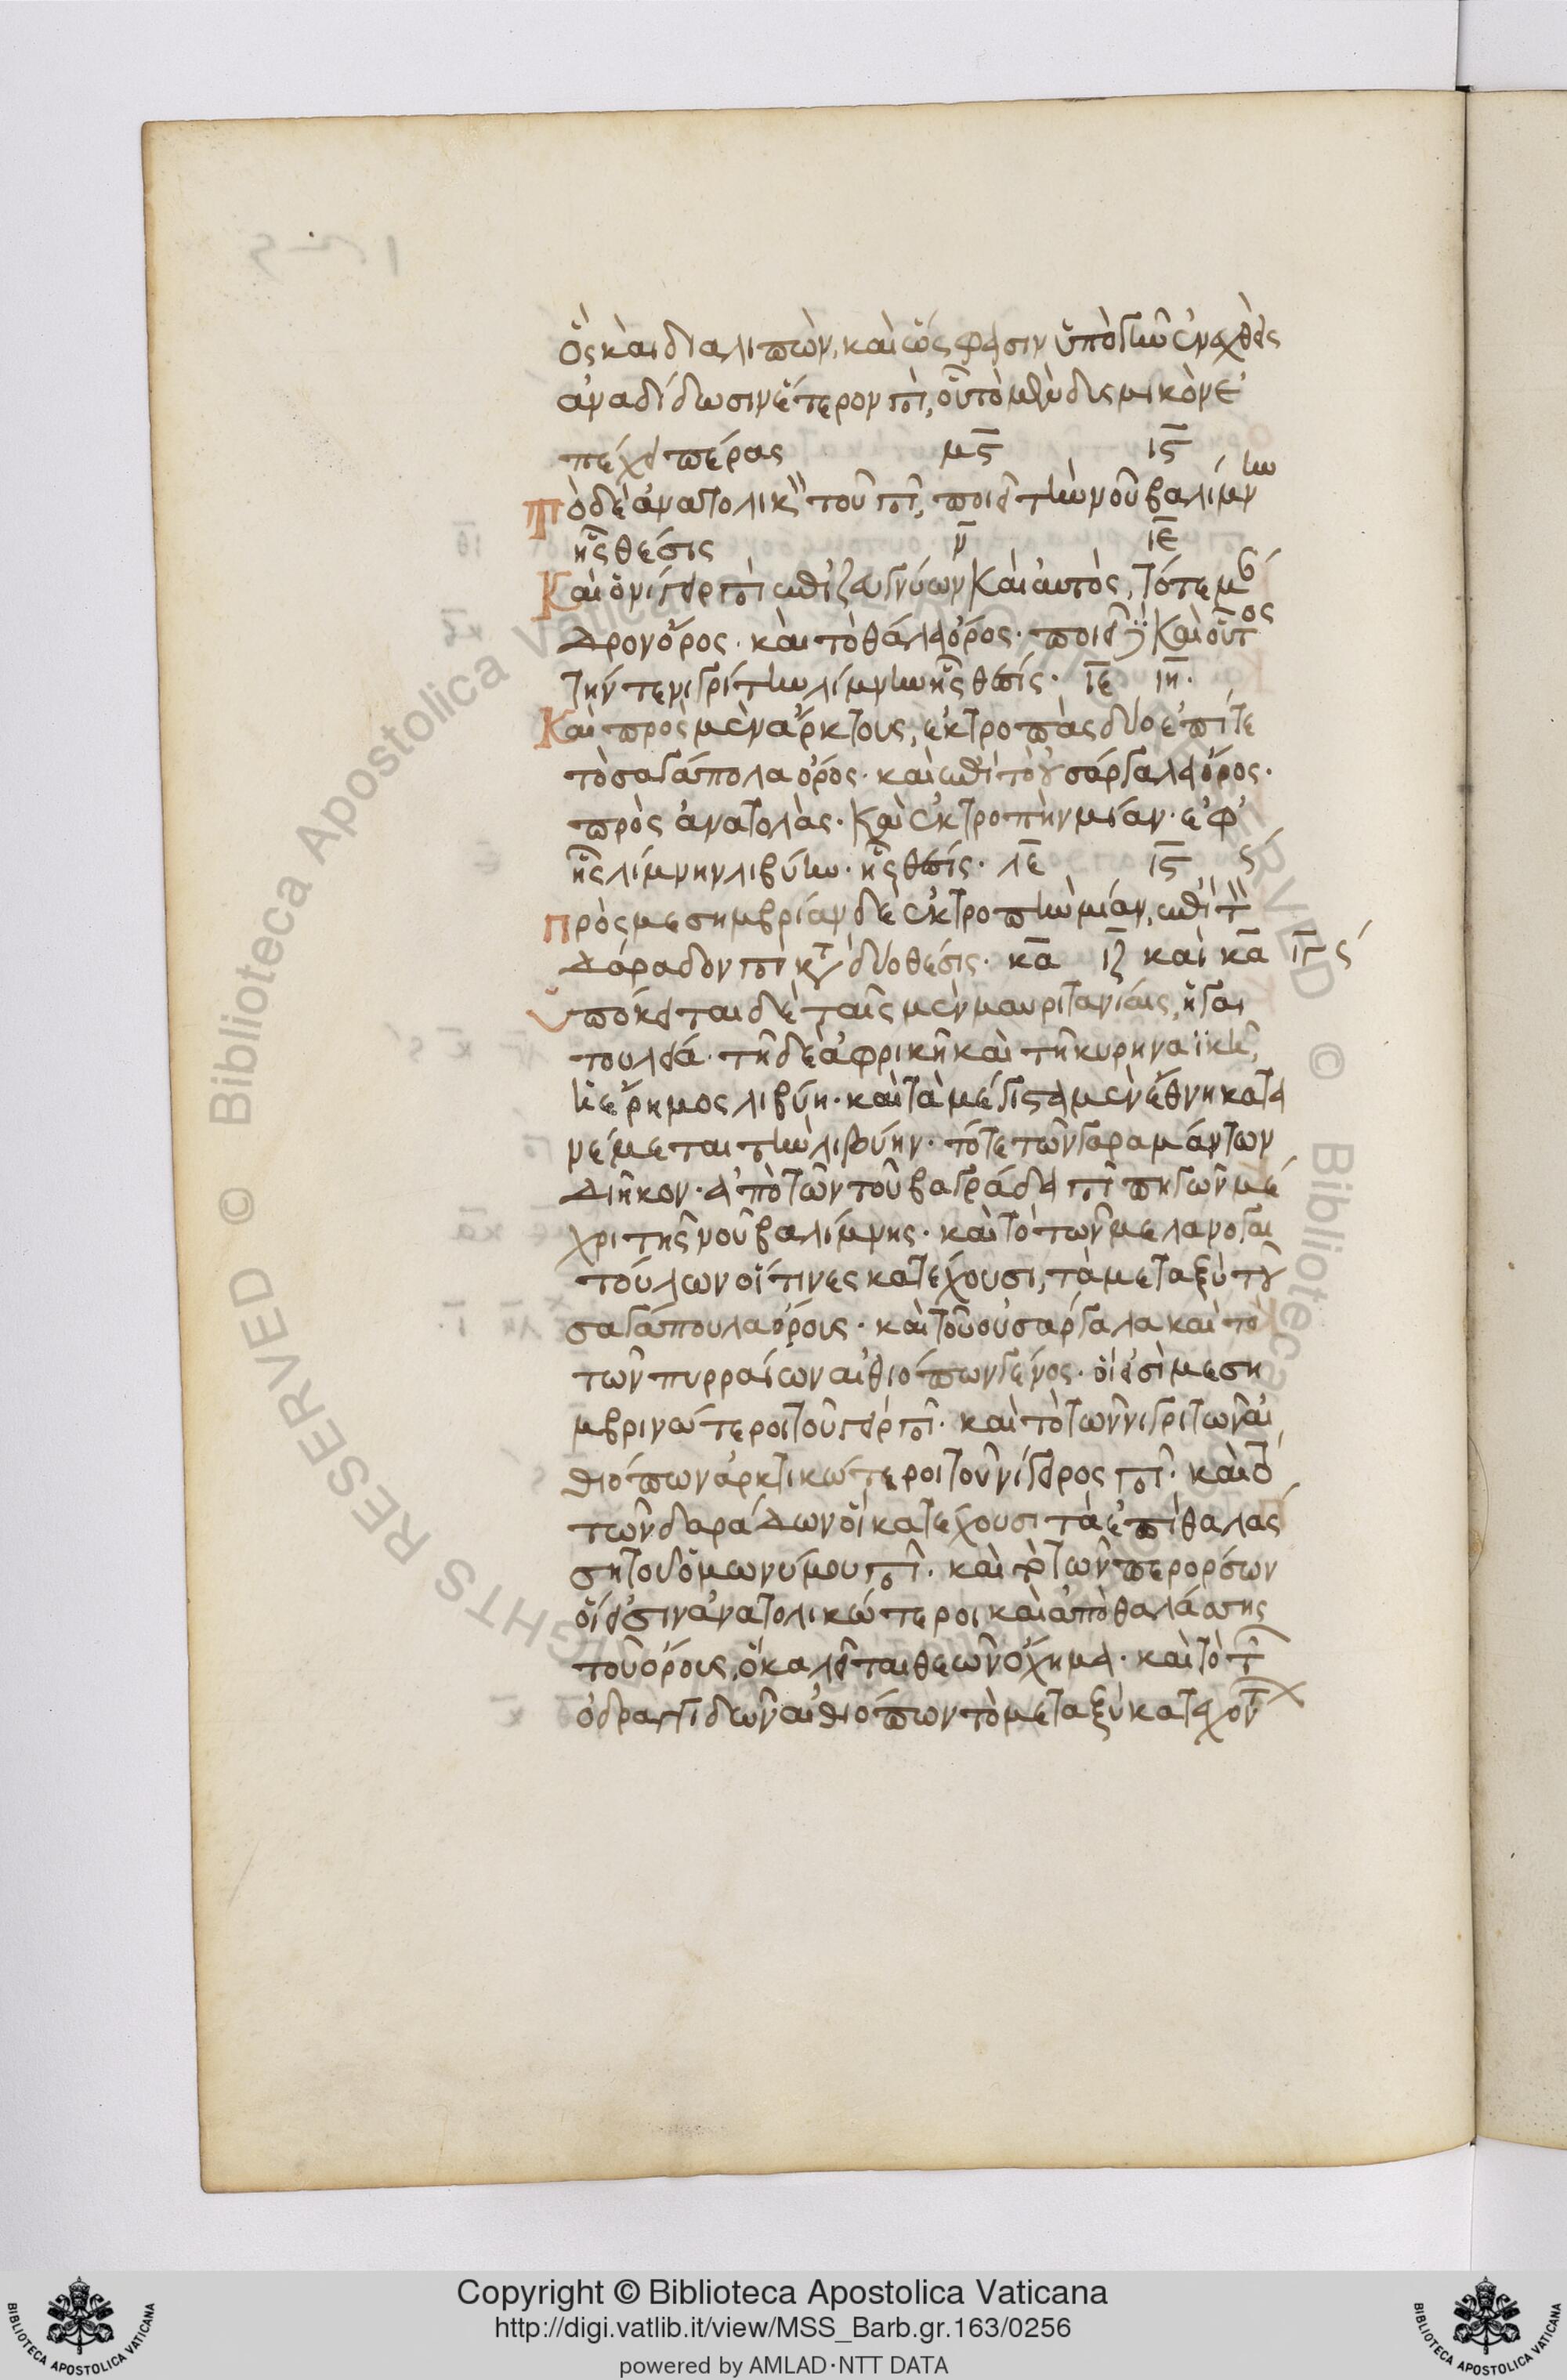 ὃς καὶ διαλιπὼν, καὶ ὥς φασιν ὑπὸ γῆν ἐνεχθεὶς
ἀναδίδωσιν ἕτερον πο, οὗ τὸ μὲν δυσμικὸν ἐ
πέχει πέρας μϛ ιϛ
τὸ δὲ ἀνατολικὸν τοῦ πο, ποιεῖ τὴν νοῦβα λίμνην
ἧς θέσις ν ιε
Καὶ ὁ νίγειρ πο ἐπιζευγνύων καὶ αὐτὸς, τό τε μάν
δρον ὄρος· καὶ τὸ θάλα ὄρος· ποιεῖ δὲ καὶ οὗτος
τήν τε νιγρίτην λίμνην ἧς θέσις· ιε ιη·
Καὶ πρὸς μὲν ἄρκτους, ἐκτροπὰς δύο ἐπί τε
τὸ σαγάπολα ὄρος· καὶ ἐπὶ τὸ οὐσάργαλα ὄρος·
πρὸς ἀνατολὰς· καὶ ἐκτροπὴν μίαν· ἐφ'
ἧς λίμνην λιβύην· ἧς θέσις· λε ιϛ ς
πρὸς μεσημβρίαν δὲ ἐκτροπὴν μίαν, ἐπὶ τὸν
δάραδον πο κατὰ δύο θέσις· κα ιζ καὶ κα ιγ ς
ὑπόκειται δὲ ταῖς μὲν μαυριτανίαις, ἡ γαι
τουλία· τῇ δὲ ἀφρικῇ καὶ τῇ κυρηναϊκῇ,
ἡ ἔρημος λιβύη· καὶ τὰ μέγιστα μὲν ἔθνη κατα
νέμεται τὴν λιβύην· τό τε τῶν γαραμάντων
διῆκον· ἀπὸ τῶν τοῦ βαγράδα πο πηγῶν μέ
χρι τῆς νοῦβα λίμνης· καὶ τὸ τῶν μελανογαι
τούλων οἵτινες κατέχουσι, τὰ μεταξὺ τοῦ
σαγάπουλα ὄρους· καὶ τοῦ οὐσάργαλα καὶ τὸ
τῶν πυρραίων αἰθιόπων γένος· οἵ εἰσὶ μεση
μβρινώτεροι τοῦ γείρ πο· καὶ τὸ τῶν νιγριτῶν αἰ
θιόπων ἀρκτικώτεροι τοῦ νίγειρος πο· καὶ τὸ
τῶν δαράδων οἳ κατέχουσι τὰ ἐπὶ θαλάς
σῃ τοῦ ὁμωνύμου πο· καὶ τὸ τῶν περορσῶν
οἵ εἰσιν ἀνατολικώτεροι καὶ ἀπὸ θαλάσσης
τοῦ ὄρους, ὃ καλεῖται θεῶν ὄχημα· καὶ τὸ τῶν
ὀδραγγιδῶν αἰθιόπων τὸ μεταξὺ κατέχον
Copyright © Biblioteca Apostolica Vaticana
http://digi.vatlib.it/view/MSS_Barb.gr.163/0256
powered by AMLAD·NTT DATA